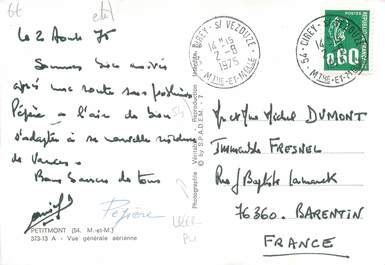 6€
été
Le 2 Août 75
Sommes bien arrivés
après une route sans problèmes
Pépère a l'air de bien
s'adapter à sa nouvelle résidence
de vacances.
Bons baisers de tous
Pépère
PETITMONT (54. M.-et-M.)
373-13 A - Vue générale aérienne
Photographie Véritable - Reproduction Interdite
© by S.P.A.D.E.M. - 7
54 - CIREY - S/ VEZOUZE -
14 H 15
2 - 8
1975
MTHE-ET-MLLE
54 - CIREY -
14
MTHE-ET-M
POSTES
0,60
Mr et Mme Michel DUMONT
Immeuble FRESNEL
Rue J Baptiste Lamarck
76360. BARENTIN
FRANCE